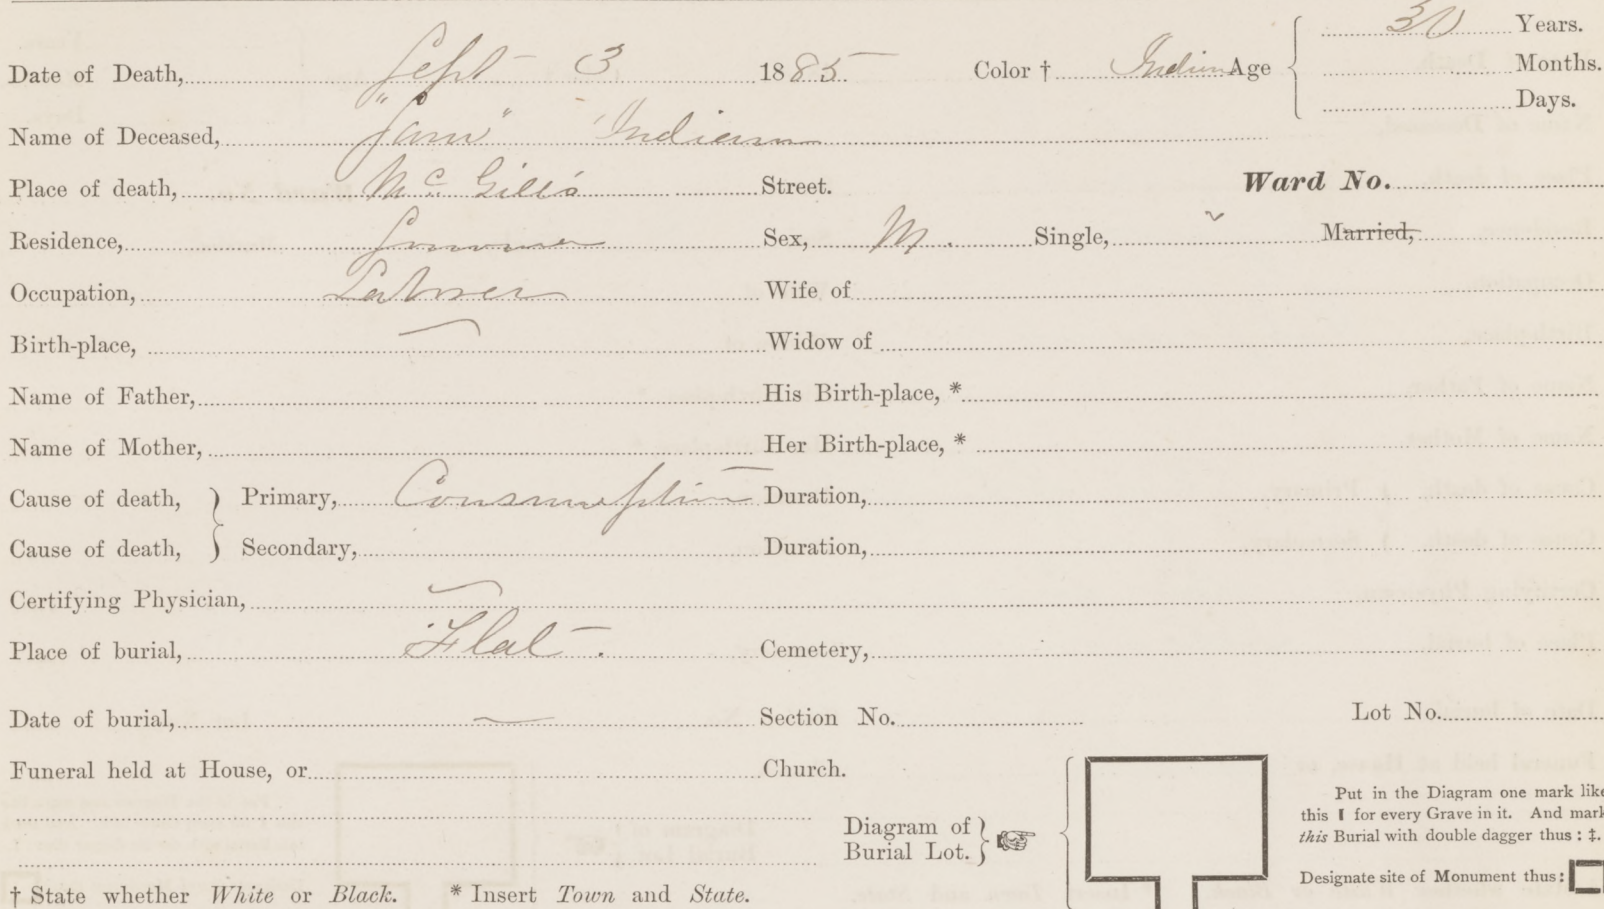 30 Years.
Date of Death, Sept 3 1885. Color † Indian Age Months.
Days.
Name of Deceased, "Sam" Indian
Place of death, McGill's Street. Ward No.
Residence, Sonoma Sex, M. Single, Married,
Occupation, Laborer Wife of
Birth-place, Widow of
Name of Father, His Birth-place, *
Name of Mother, Her Birth-place, *
Cause of death, } Primary, Consumption Duration,
Cause of death, } Secondary, Duration,
Certifying Physician,
Place of burial, Flat. Cemetery,
Date of burial, Section No. Lot No.
Funeral held at House, or Church.
Put in the Diagram one mark like
this I for every Grave in it. And mark
Diagram of
Burial Lot. } ☞
this Burial with double dagger thus: ‡.
Designate site of Monument thus:
† State whether White or Black. * Insert Town and State.